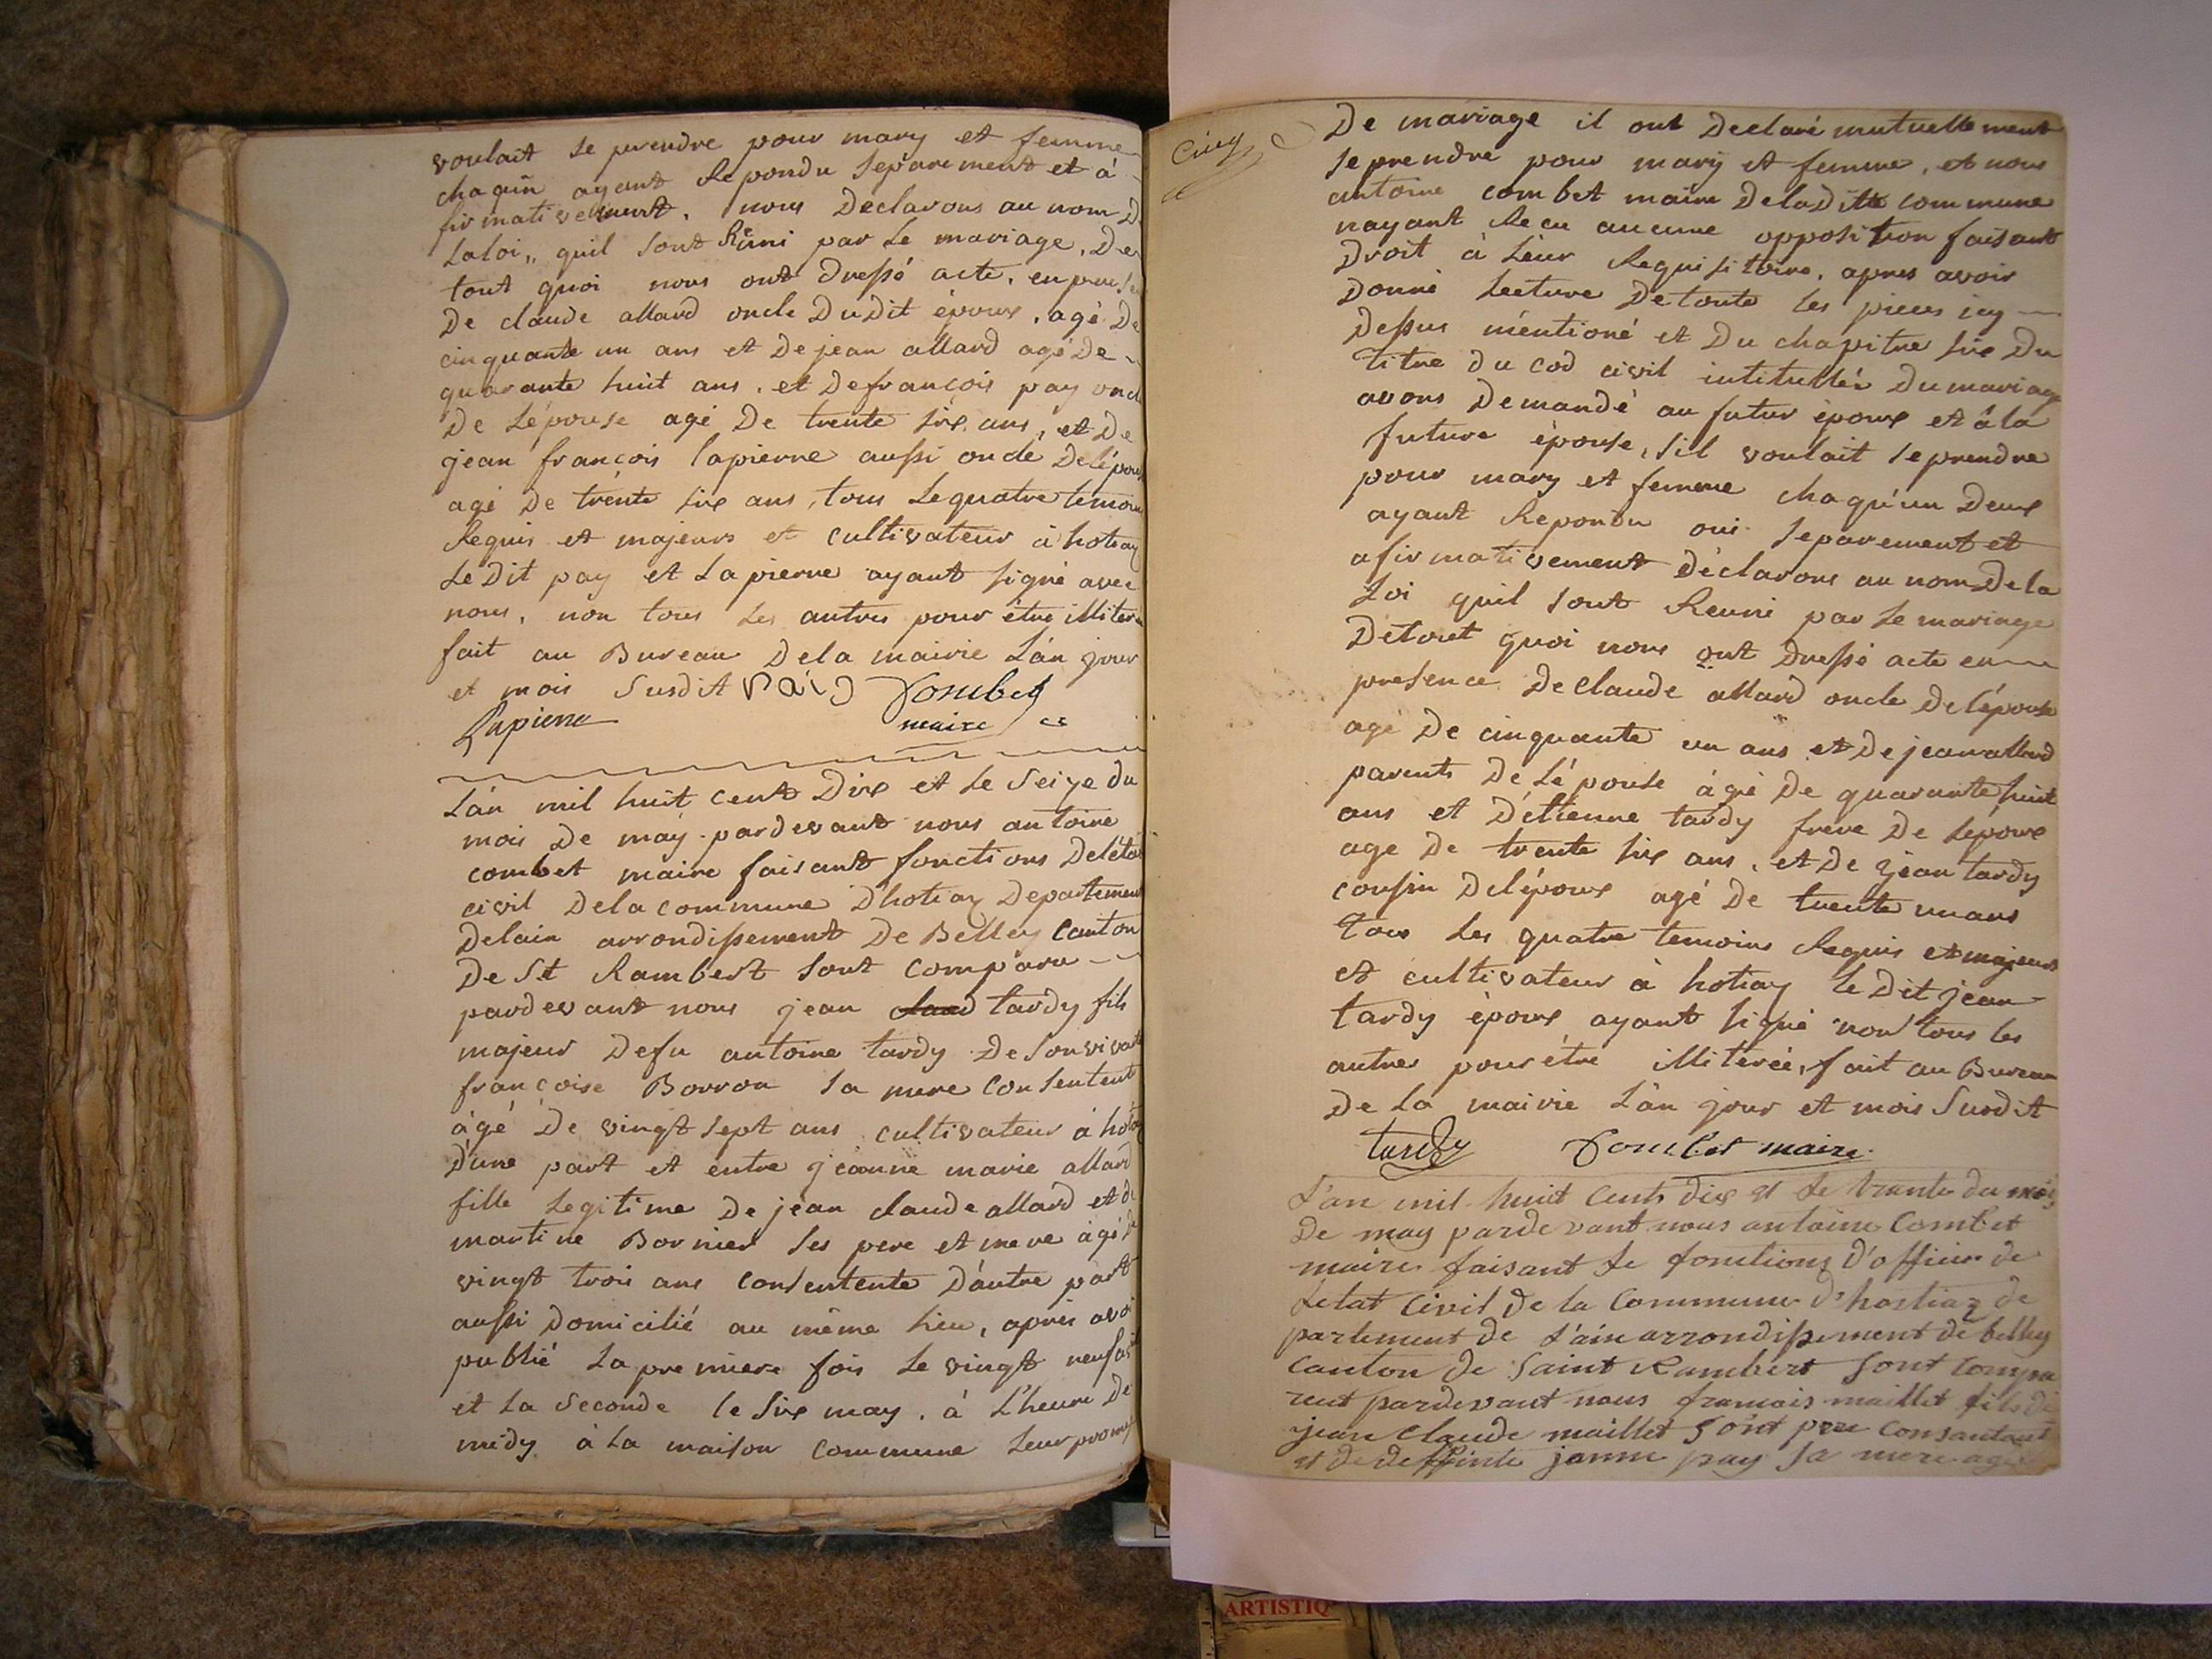 voulait se prendre pour mary et femme
chaquñ ayant Repondu separement et à
firmativement, nous Declarons au nom D
La loi,, quil sont Réuni par Le mariage, De
tout quoi nous ont dressé acte, en
De claude allard oncle Dudit époux, agé De
cinquante un ans et De jean allard agé De
quarante huit ans, et De françois pay oncle
De Lépouse agé De trente six ans, et De
jean françois lapierre aussi oncle De Lépou
agé De trente six ans, tous Le quatre temoin
Requis et majeurs et Cultivateur à hotiaz
Le Dit pay et Lapierre ayant signé avec
nous, non tous Les autres pour être illiter
fait au Bureau De la mairie L'an jour
et mois Susdit Paij Combet
Lapierre maire
L'an mil huit cent Dix et Le Seize du
mois De may pardevant nous antoine
combet maire faisant fonctions De Léta
civil De la commune D'hotiaz Departement
De lain arrondissement De Belley Canton
De St Rambert sont Comparu
pardevant nous jean claud tardy fils
majeur De fu antoine tardy De son vivant
françoise Borron sa mere Consentent
àgé De vingt sept ans cultivateur à hotiaz
D'une part et entre jeanne marie allard
fille Legitime De jean claude allard et d
martine Bornier ses pere et mere àgé d
vingt trois ans consentente D'autre part
aussi Domicilié au même Lieu, aprés avoi
publié La premiere fois Le vingt neuf avril
et La Seconde le six may, à L'heure De
midy à La maison Commune Leur prom
Cinq
De mariage il ont Declaré mutuellement
se prendre pour mary et femme, et nous
antoine combet maire De la Ditte commune
nayant Recu aucune opposition faisant
Droit à Léur Requisitoire, apres avoir
Donné Lecture De toute Les pieces icy
Dessus mentioné et Du chapitre six Du
titre du Cod civil intitullér Du mariage
avons Demandé au futur époux et à la
future épouse, sil voulait se prendre
pour mary et femme chaqu'un Deux
ayant Repondu oui separement et
afirmativement Déclarons au nom De la
Loi quil sont Reuni par Le mariage
De tout quoi nous ont Dressé acte en
presence De claude allard oncle De Lépouse
agé De cinquante un ans et De jean allard
parents De Lépouse àgé De quarante huit
ans et D'étienne tardy frere De Lépoux
age De trente six ans, et De jean tardy
cousin De Lépoux agé De trente un ans
Tous Les quatre temoins Requis et majeurs
et cultivateur à hotiaz Le Dit jean
tardy époux ayant signé non tous les
autres pour être illiterée, fait au Bureau
De La mairie L'an jour et mois Susdit
tardy Combet maire
L'an mil huit cents dix et le trante du mois
De may pardevant nous antoine Combet
maire faisant le fonctions d'officier de
Letat Civil de la Commune d'hostiaz de
partement de L'ain arrondissement de belley
Canton de Saint Rambert Sont Compa
rent pardevant nous francois maillet fils de
jean Claude maillet Sont pere Consantant
et de deffinte janne pay Sa mere agé
ARTISTIQ